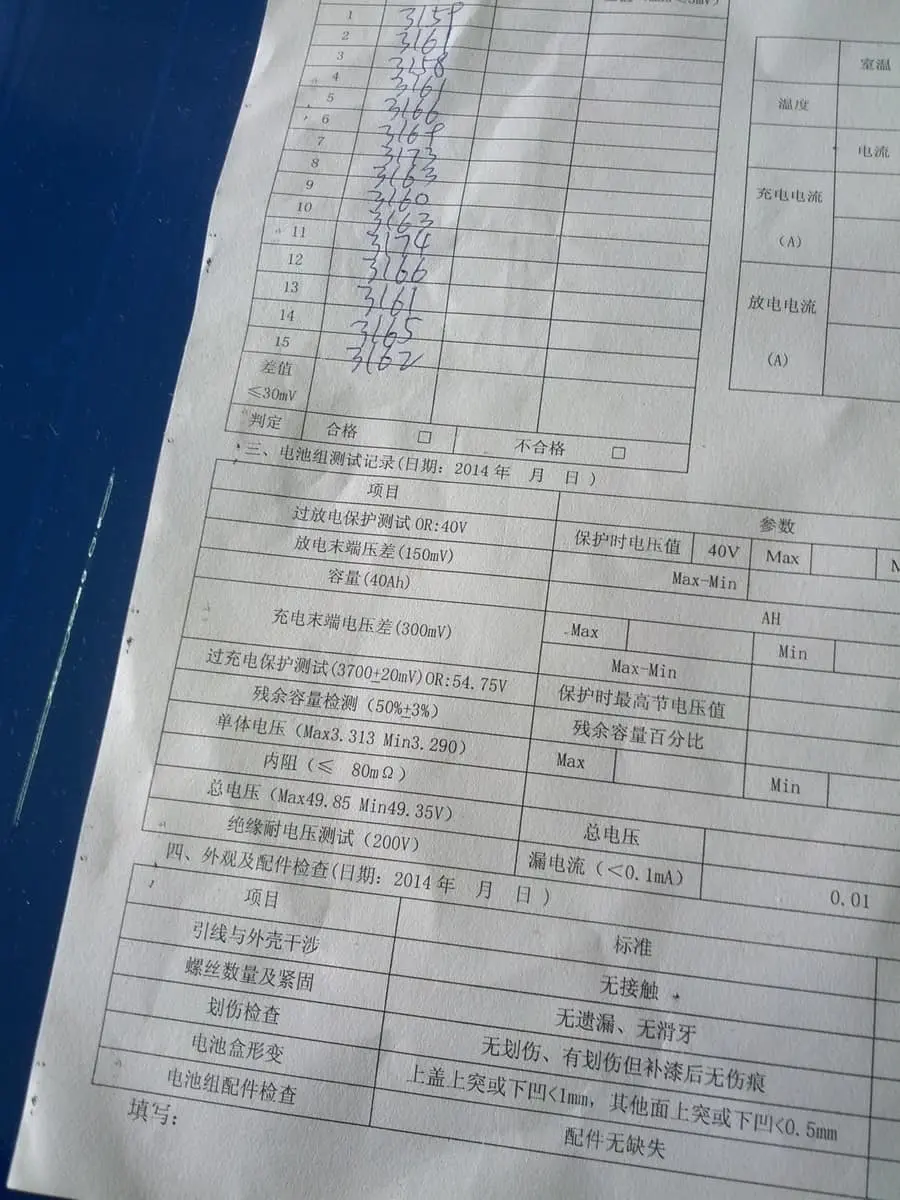 1 3159
2 3161
3 3158
4 3161
5 3166
6 3169
7 3173
8 3163
9 3160
10 3163
11 3174
12 3166
13 3161
14 3165
15 3162
差值
≤30mV
判定 合格 □ 不合格 □
室温
温度
电流
充电电流
(A)
放电电流
(A)
三、电池组测试记录(日期: 2014年 月 日)
项目 参数
过放电保护测试OR:40V 保护时电压值 40V Max
放电末端压差(150mV) Max-Min
容量(40Ah) AH
充电末端电压差(300mV) Max Min
Max-Min
过充电保护测试(3700±20mV)OR:54.75V 保护时最高节电压值
残余容量检测(50%±3%) 残余容量百分比
单体电压(Max3.313 Min3.290) Max Min
内阻(≤ 80mΩ)
总电压(Max49.85 Min49.35V) 总电压
绝缘耐电压测试(200V) 漏电流(<0.1mA) 0.01
四、外观及配件检查(日期: 2014年 月 日)
项目 标准
引线与外壳干涉 无接触
螺丝数量及紧固 无遗漏、无滑牙
划伤检查 无划伤、有划伤但补漆后无伤痕
电池盒形变 上盖上突或下凹<1mm, 其他面上突或下凹<0.5mm
电池组配件检查 配件无缺失
填写: